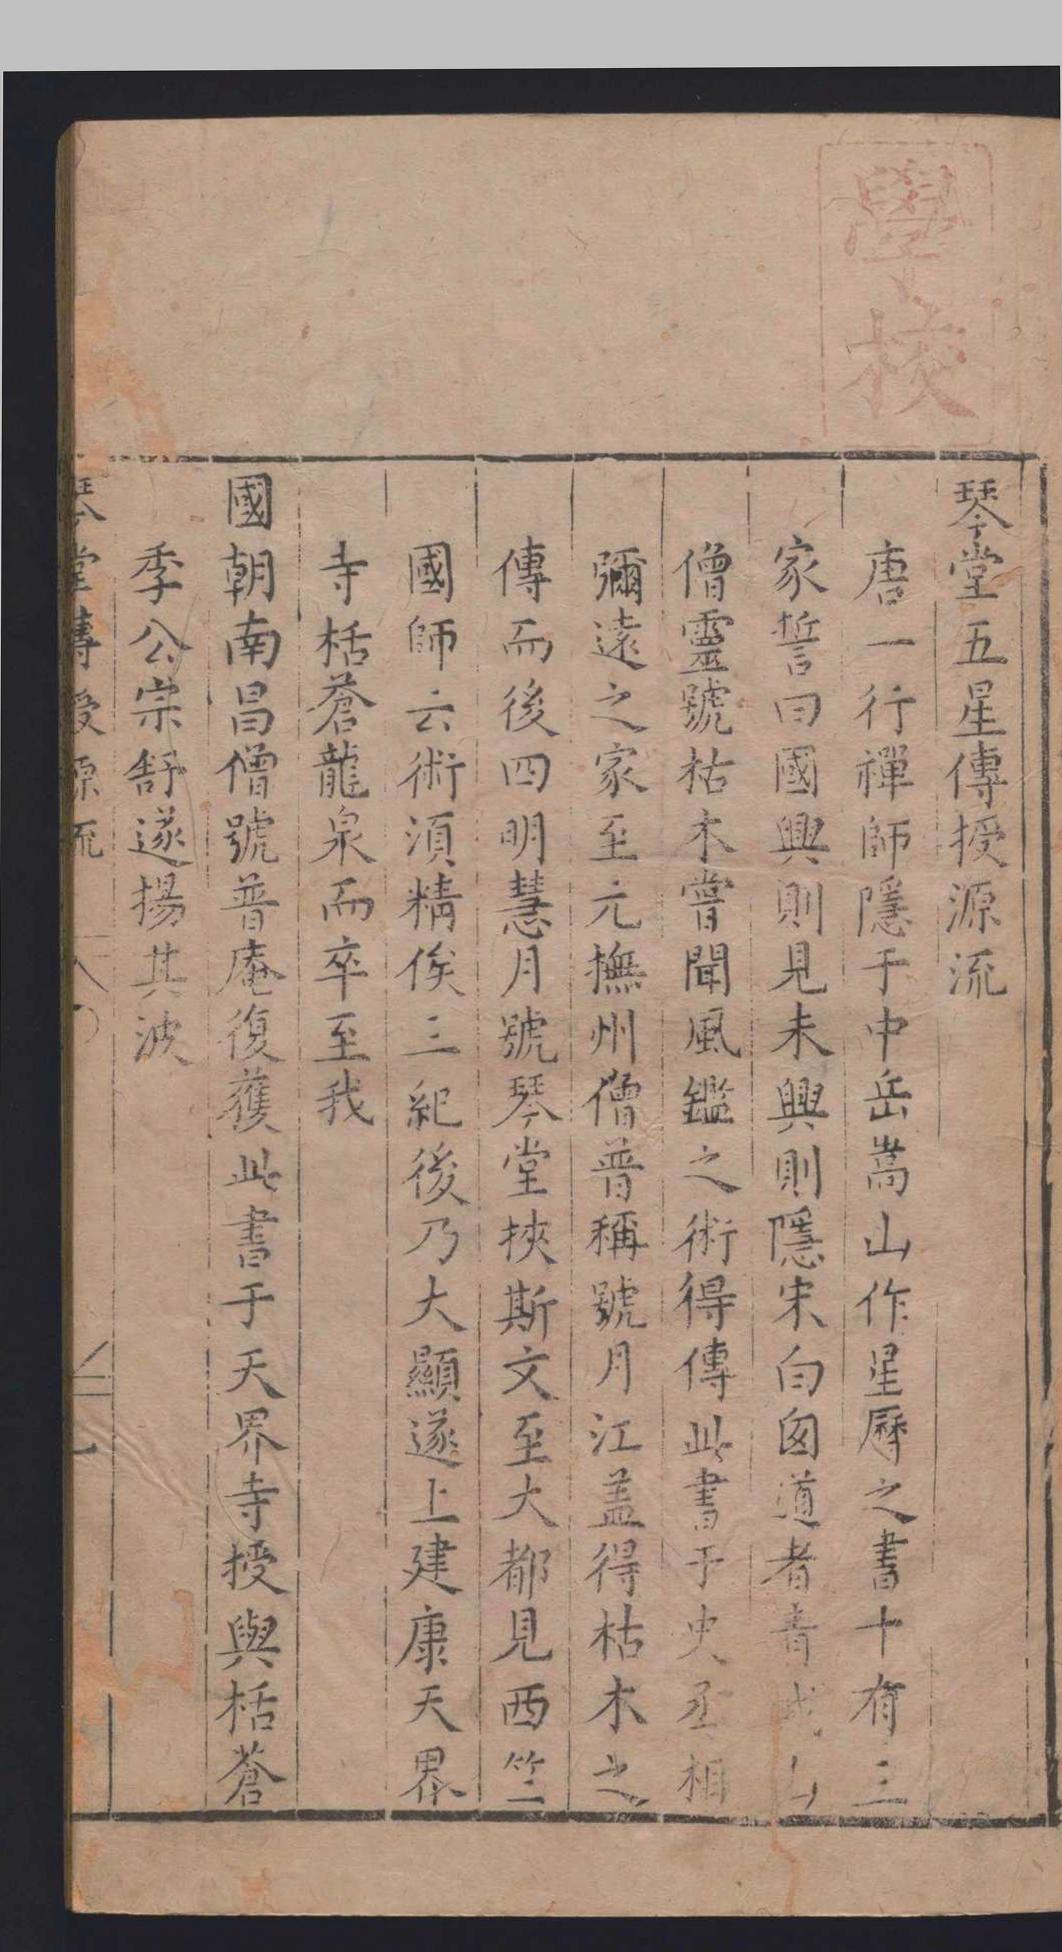 學校
琴堂五星傳授源流
唐一行禪師隱于中岳嵩山作星曆之書十有三
家誓曰國興則見未興則隱宋白囪道者青城山
僧靈號枯木嘗聞風鑑之術得傳此書于史丞相
彌遠之家至元撫州僧普稱號月江盖得枯木之
傳而後四明慧月號琴堂挾斯文至大都見西竺
國師云術須精俟三紀後乃大顯遂上建康天界
寺栝蒼龍泉而卒至我
國朝南昌僧號普庵復獲此書于天界寺授與栝蒼
季公宗舒遂揚其波
琴堂傳授源流
一